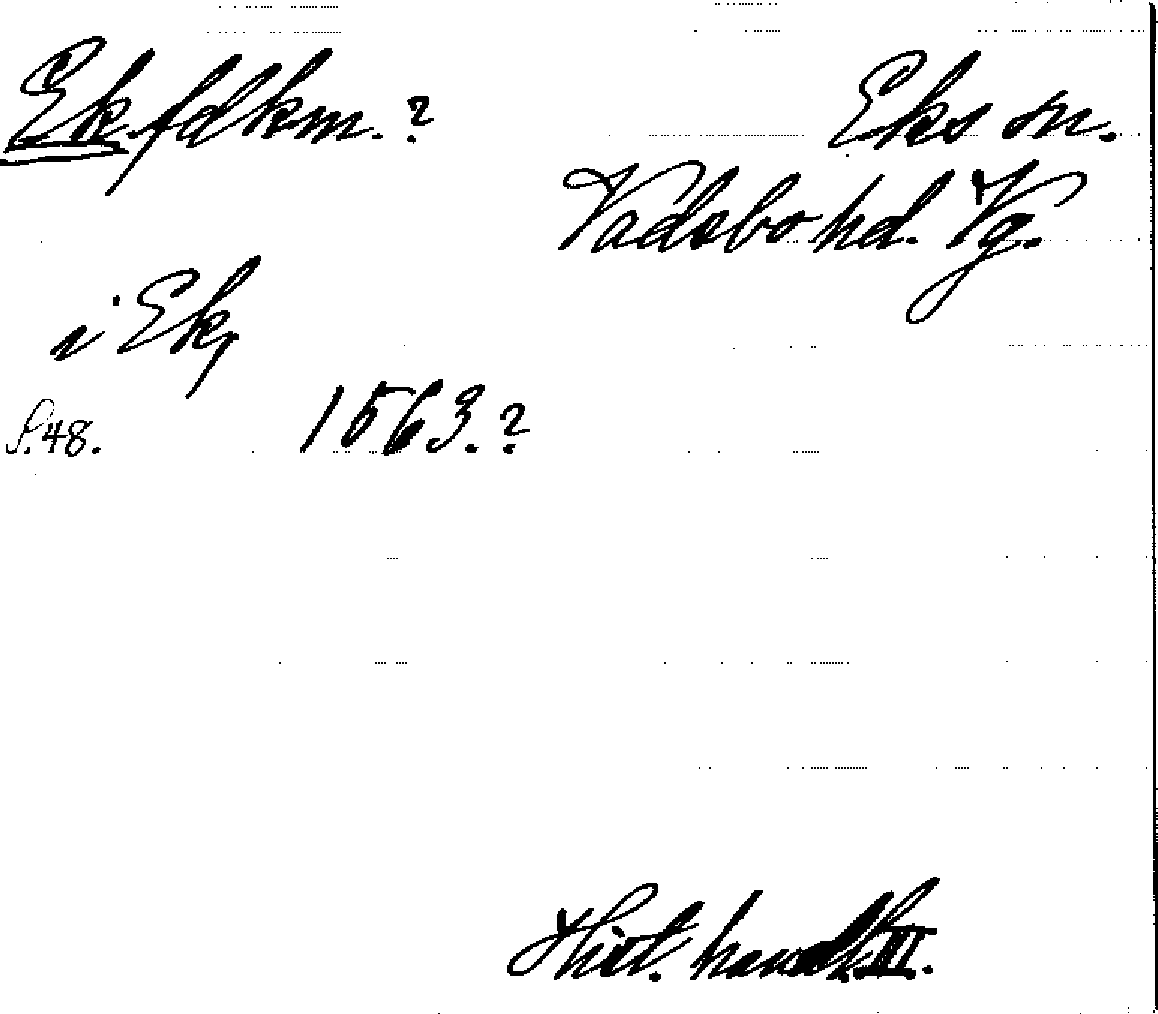 Ek fdkm. ?
Eks sn.
Vadsbo hd. Vg.
i Ek,
S. 48.
1563. ?
Hist. handl. III.